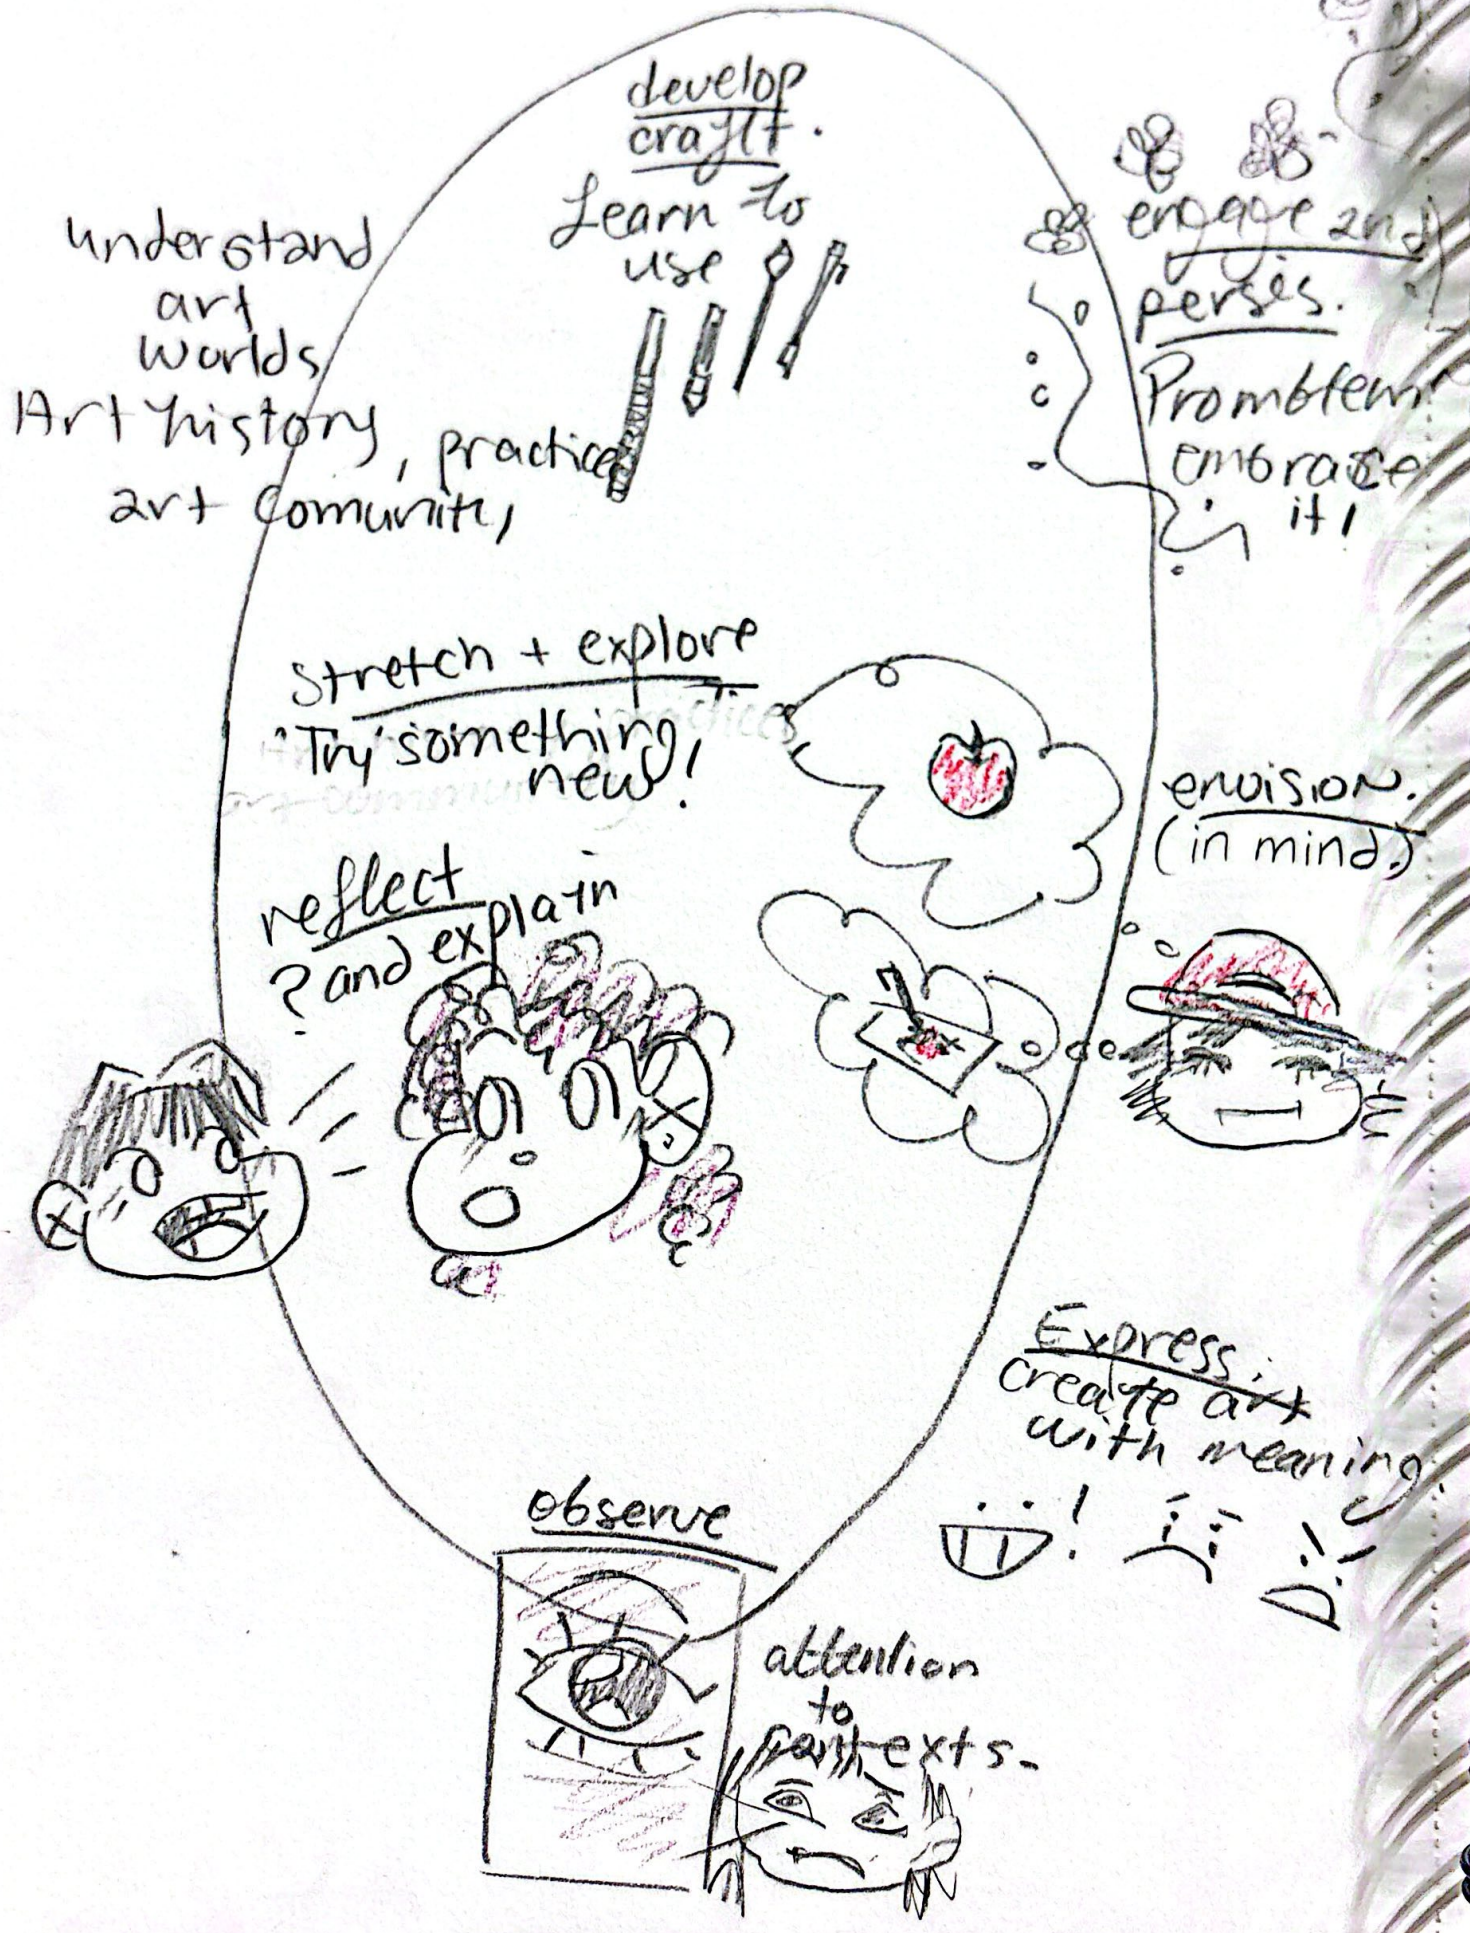 develop
craft.
Learn to
use
understand
art
worlds
Art history, practice
art comunity
engage and
persis.
Promblem
embrace
it!
stretch + explore
"Try" something
new!
envision.
(in mind.)
reflect
? and explain
Express:
create art
with meaning
!
observe
attention
to
contexts.